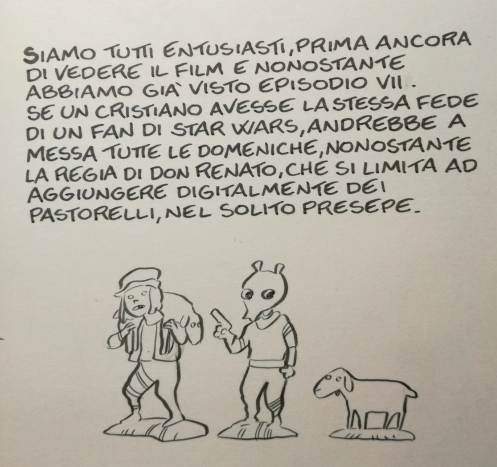 SIAMO TUTTI ENTUSIASTI, PRIMA ANCORA
DI VEDERE IL FILM E NONOSTANTE
ABBIAMO GIA' VISTO EPISODIO VII.
SE UN CRISTIANO AVESSE LA STESSA FEDE
DI UN FAN DI STAR WARS, ANDREBBE A
MESSA TUTTE LE DOMENICHE, NONOSTANTE
LA REGIA DI DON RENATO, CHE SI LIMITA AD
AGGIUNGERE DIGITALMENTE DEI
PASTORELLI, NEL SOLITO PRESEPE.